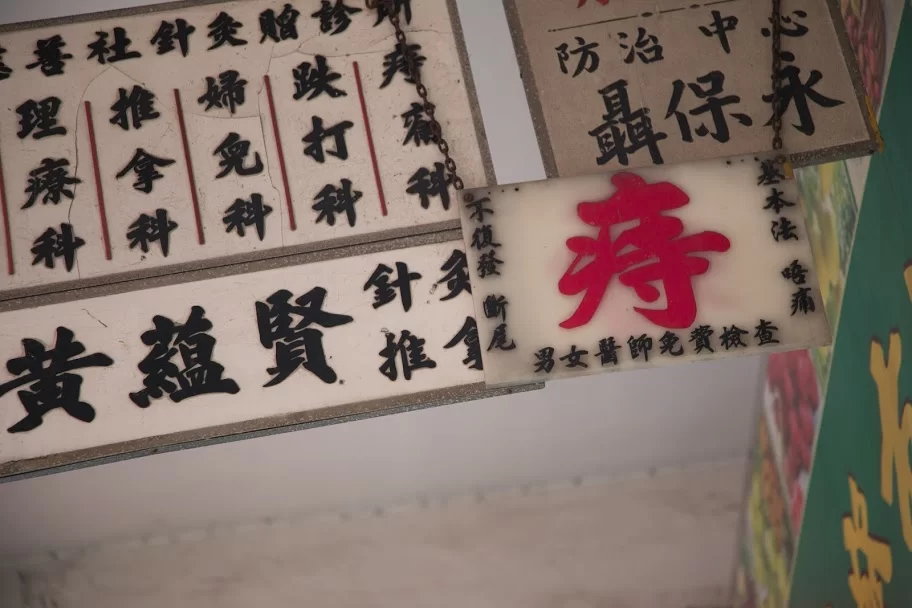 善社針灸贈診
理療科
推拿科
婦兒科
跌打科
黃蘊賢
針灸
推拿
防治中心
聶保永
不復發 斷尾
痔
基本法 唔痛
男女醫師免費檢查